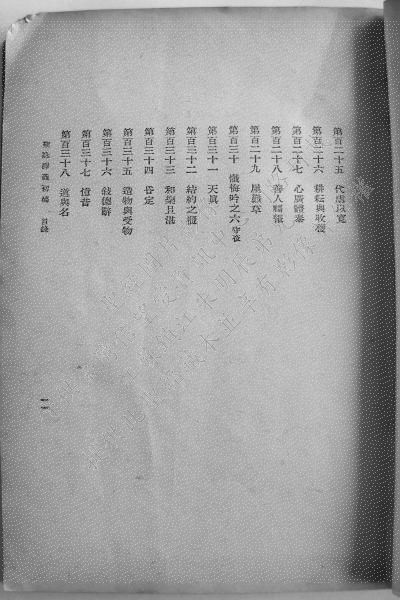 第百二十五 代虐以寬
第百二十六 耕耘與收穫
第百二十七 心廣體泰
第百二十八 善人福報
第百二十九 屋巔草
第百三十 懺悔吟之六 守夜
第百三十一 天眞
第百三十二 結約之權
第百三十三 和樂且湛
第百三十四 昏定
第百三十五 造物與受物
第百三十六 敍德辭
第百三十七 憶昔
第百三十八 道與名
聖詠譯義初稿 目錄